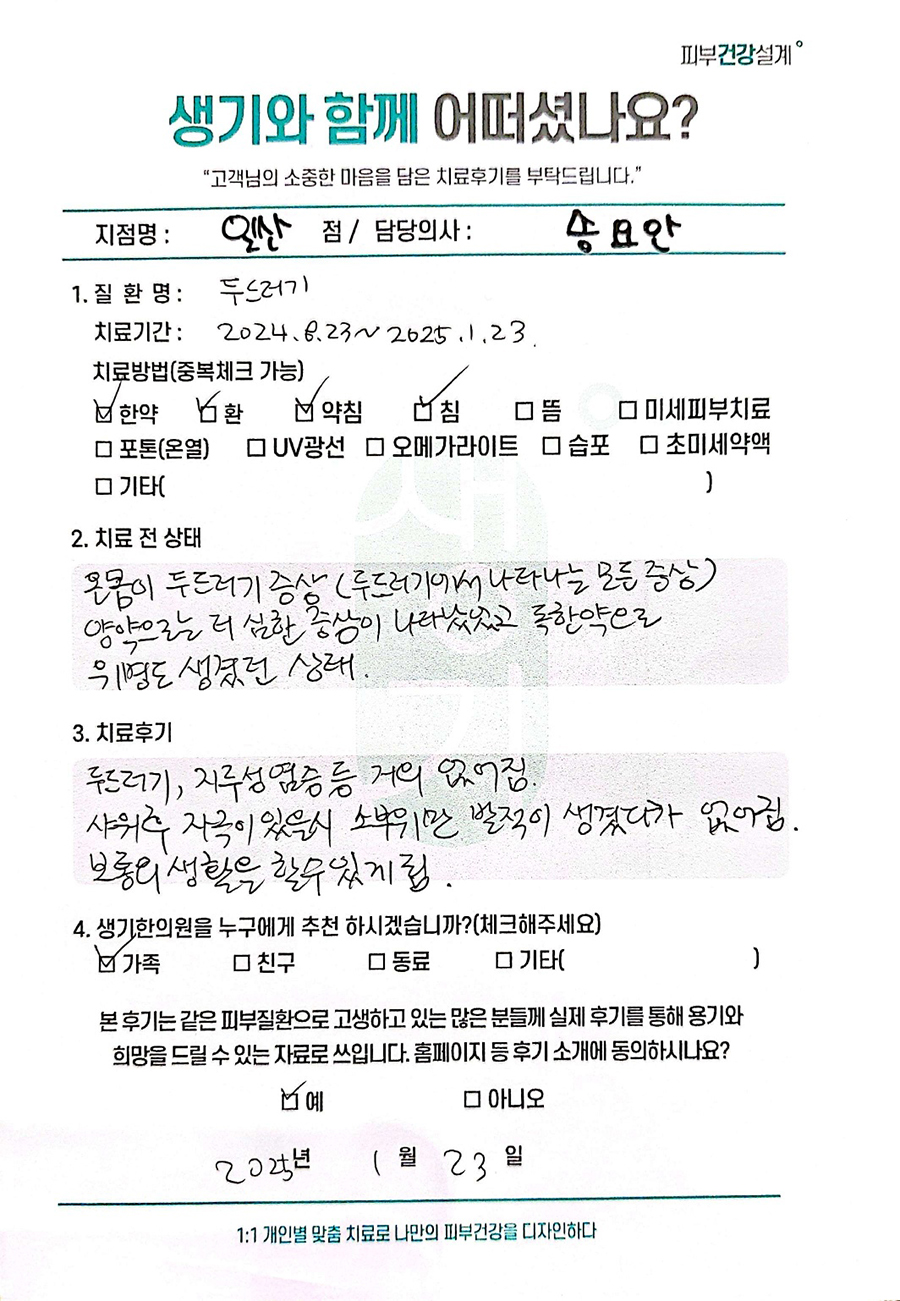 피부건강설계
생기와 함께 어떠셨나요?
“고객님의 소중한 마음을 담은 치료후기를 부탁드립니다.”
지점명 : 일산 점 / 담당의사 : 송요안
1. 질 환 명 : 두드러기
치료기간 : 2024.8.23~2025.1.23.
치료방법(중복체크 가능)
☑ 한약 ☑ 환 ☑ 약침 ☑ 침 □ 뜸 □ 미세피부치료
□ 포톤(온열) □ UV광선 □ 오메가라이트 □ 습포 □ 초미세약액
□ 기타( )
생기
2. 치료 전 상태
온몸이 두드러기 증상 (두드러기에서 나타나는 모든 증상)
양약으로는 더 심한 증상이 나타났었고 독한약으로
위병도 생겼던 상태.
3. 치료후기
두드러기, 지루성염증등 거의 없어짐.
샤워후 자극이 있을시 소부위만 발적이 생겼다가 없어짐.
보통의 생활을 할수 있게 됨.
4. 생기한의원을 누구에게 추천 하시겠습니까?(체크해주세요)
☑ 가족 □ 친구 □ 동료 □ 기타( )
본 후기는 같은 피부질환으로 고생하고 있는 많은 분들께 실제 후기를 통해 용기와
희망을 드릴 수 있는 자료로 쓰입니다. 홈페이지 등 후기 소개에 동의하시나요?
☑ 예 □ 아니오
2025년 1월 23일
1:1 개인별 맞춤 치료로 나만의 피부건강을 디자인하다